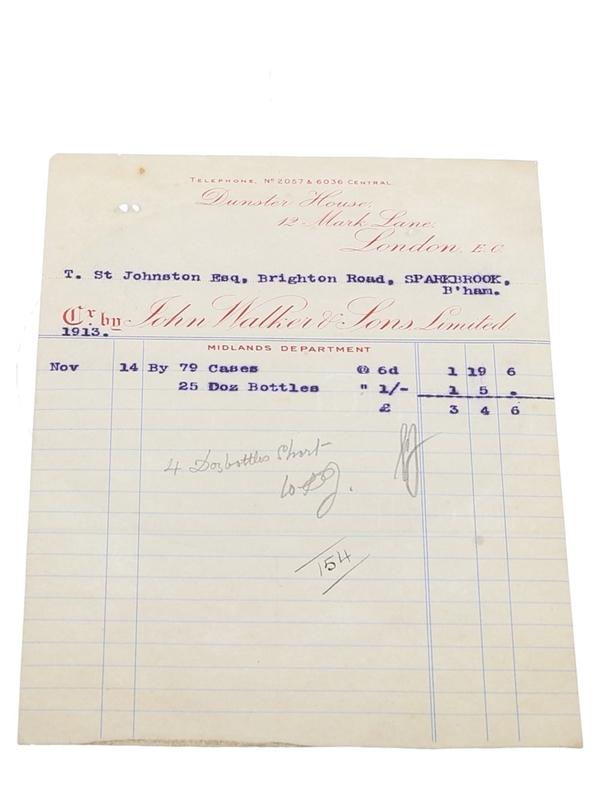 TELEPHONE, Nº 2057 & 6036 CENTRAL.
Dunster House,
12 Mark Lane,
London, E.C.
T. St Johnston Esq, Brighton Road, SPARKBROOK,
B'ham.
Cr. by John Walker & Sons Limited
1913.
MIDLANDS DEPARTMENT
Nov 14 By 79 Cases @ 6d 1 19 6
25 Doz Bottles " 1/- 1 5 .
£ 3 4 6
4 Doz bottles Short
154